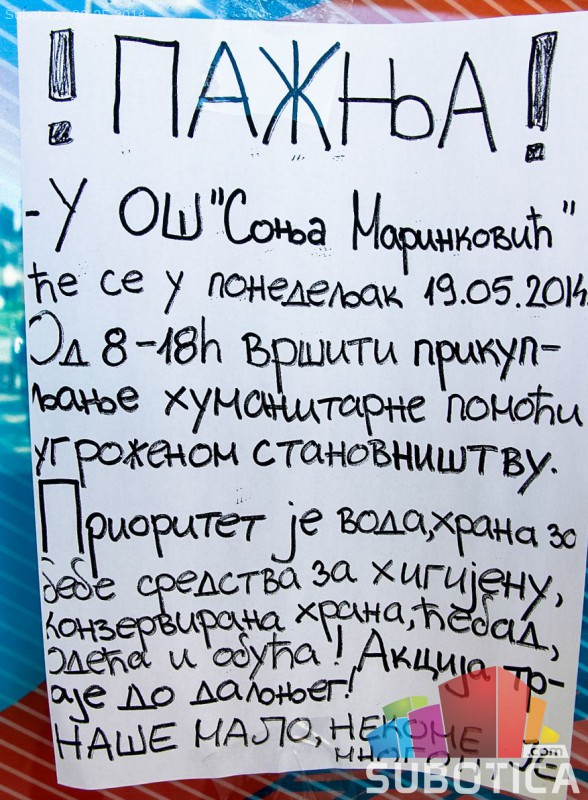 ! ПАЖЊА !
-У ОШ "Соња Маринковић"
ће се у понедељак 19.05.2014
Од 8-18h вршити прикуп-
љање хуманитарне помоћи
угроженом становништву.
Приоритет је вода, храна за
бебе средства за хигијену,
конзервирана храна, ћебад,
одећа и обућа! Акција тр-
аје до даљњег!
НАШЕ МАЛО, НЕКОМЕ
ЈЕ
.com
SUBOTICA